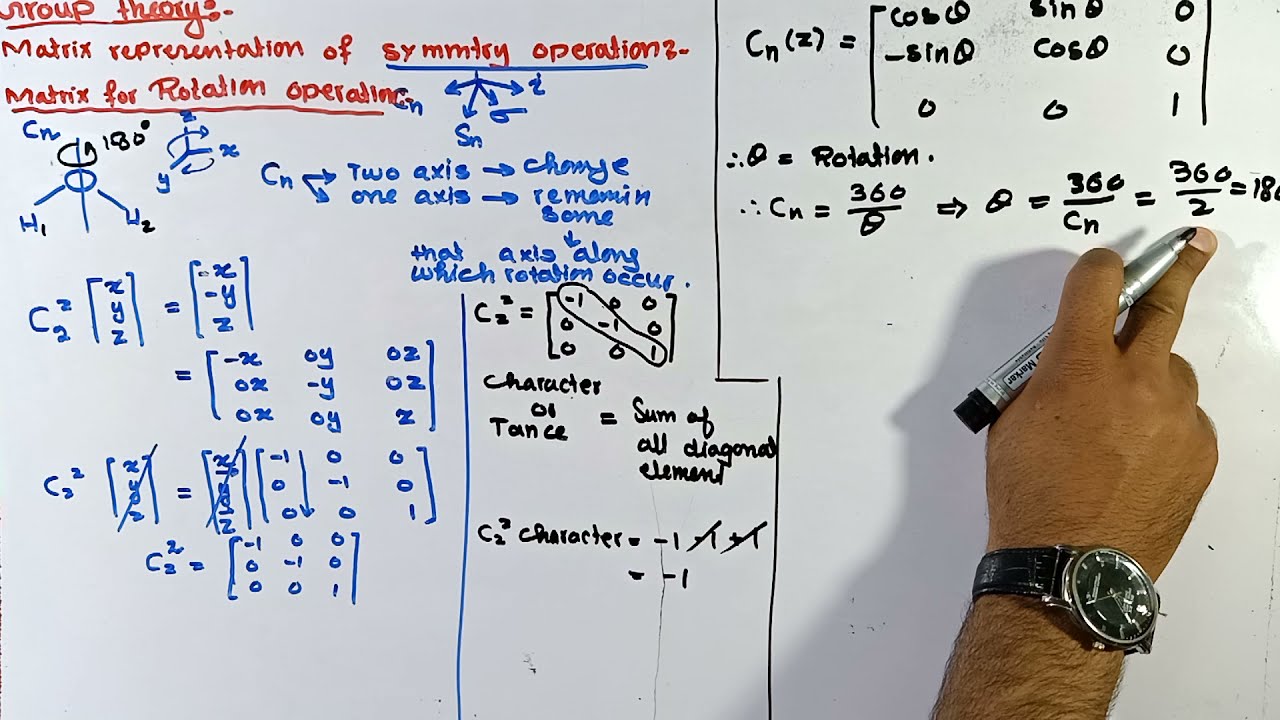 Group theory:-
Matrix representation of symmtry operation:-
Matrix for Rotation operation.
Cn
i
σ
Sn
Cn 180°
z
x
y
H1 H2
Cn → Two axis → change
→ one axis → remamin
same
↓
that axis along
which rotation occur.
C2^z [x y z] = [-x -y z]
= [-x 0y 0z
0x -y 0z
0x 0y z]
C2^z [x y z] = [x y z] [-1 0 0
0 -1 0
0 0 1]
C2^z = [-1 0 0
0 -1 0
0 0 1]
C2^z = [-1 0 0
0 -1 0
0 0 1]
Character
or
Tance
= Sum of
all diagonal
element
C2^z character = -1 -1 +1
= -1
Cn(z) = [cosθ sinθ 0
-sinθ cosθ 0
0 0 1]
∴θ = Rotation.
∴Cn = 360/θ ⇒ θ = 360/Cn = 360/2 = 180
Marker